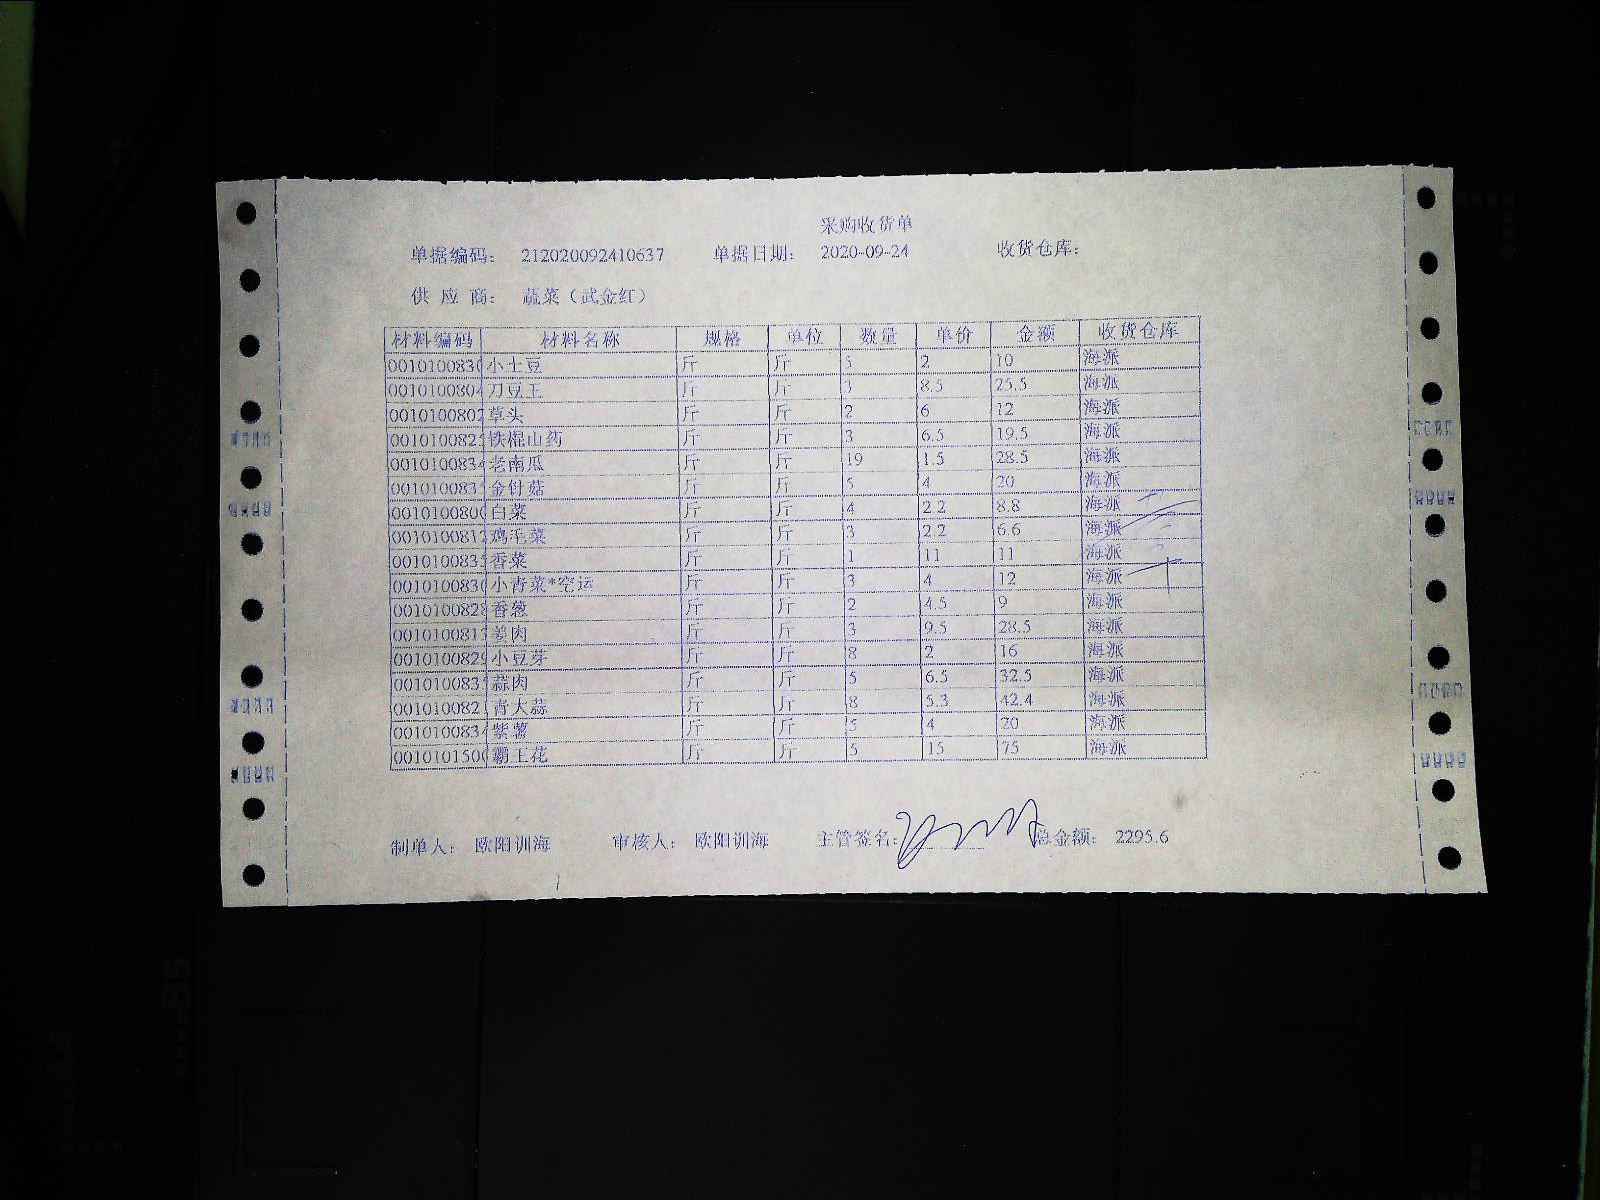 采购收货单
单据编码： 212020092410637 单据日期： 2020-09-24 收货仓库：
供 应 商： 蔬菜（武金红）
材料编码 材料名称 规格 单位 数量 单价 金额 收货仓库
001010083 小土豆 斤 斤 5 2 10 海派
001010080 刀豆王 斤 斤 3 8.5 25.5 海派
0010100802 草头 斤 斤 2 6 12 海派
001010082 铁棍山药 斤 斤 3 6.5 19.5 海派
001010083 老南瓜 斤 斤 19 1.5 28.5 海派
001010083 金针菇 斤 斤 5 4 20 海派
001010080 白菜 斤 斤 4 2.2 8.8 海派
001010081 鸡毛菜 斤 斤 3 2.2 6.6 海派
001010083 香菜 斤 斤 1 11 11 海派
001010083 小青菜*空运 斤 斤 3 4 12 海派
001010082 香葱 斤 斤 2 4.5 9 海派
001010081 姜肉 斤 斤 3 9.5 28.5 海派
001010082 小豆芽 斤 斤 8 2 16 海派
001010083 蒜肉 斤 斤 5 6.5 32.5 海派
001010082 青大蒜 斤 斤 8 5.3 42.4 海派
001010083 紫薯 斤 斤 5 4 20 海派
001010150 霸王花 斤 斤 5 15 75 海派
制单人： 欧阳训海 审核人： 欧阳训海 主管签名： 总金额： 2295.6